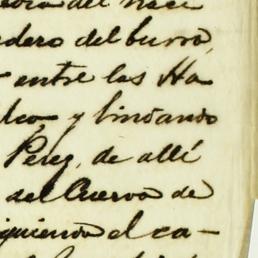 del nace
dero del burro,
entre las Ha
y lindando
Perez, de allí
del Cuervo de
iguiendo el ca-